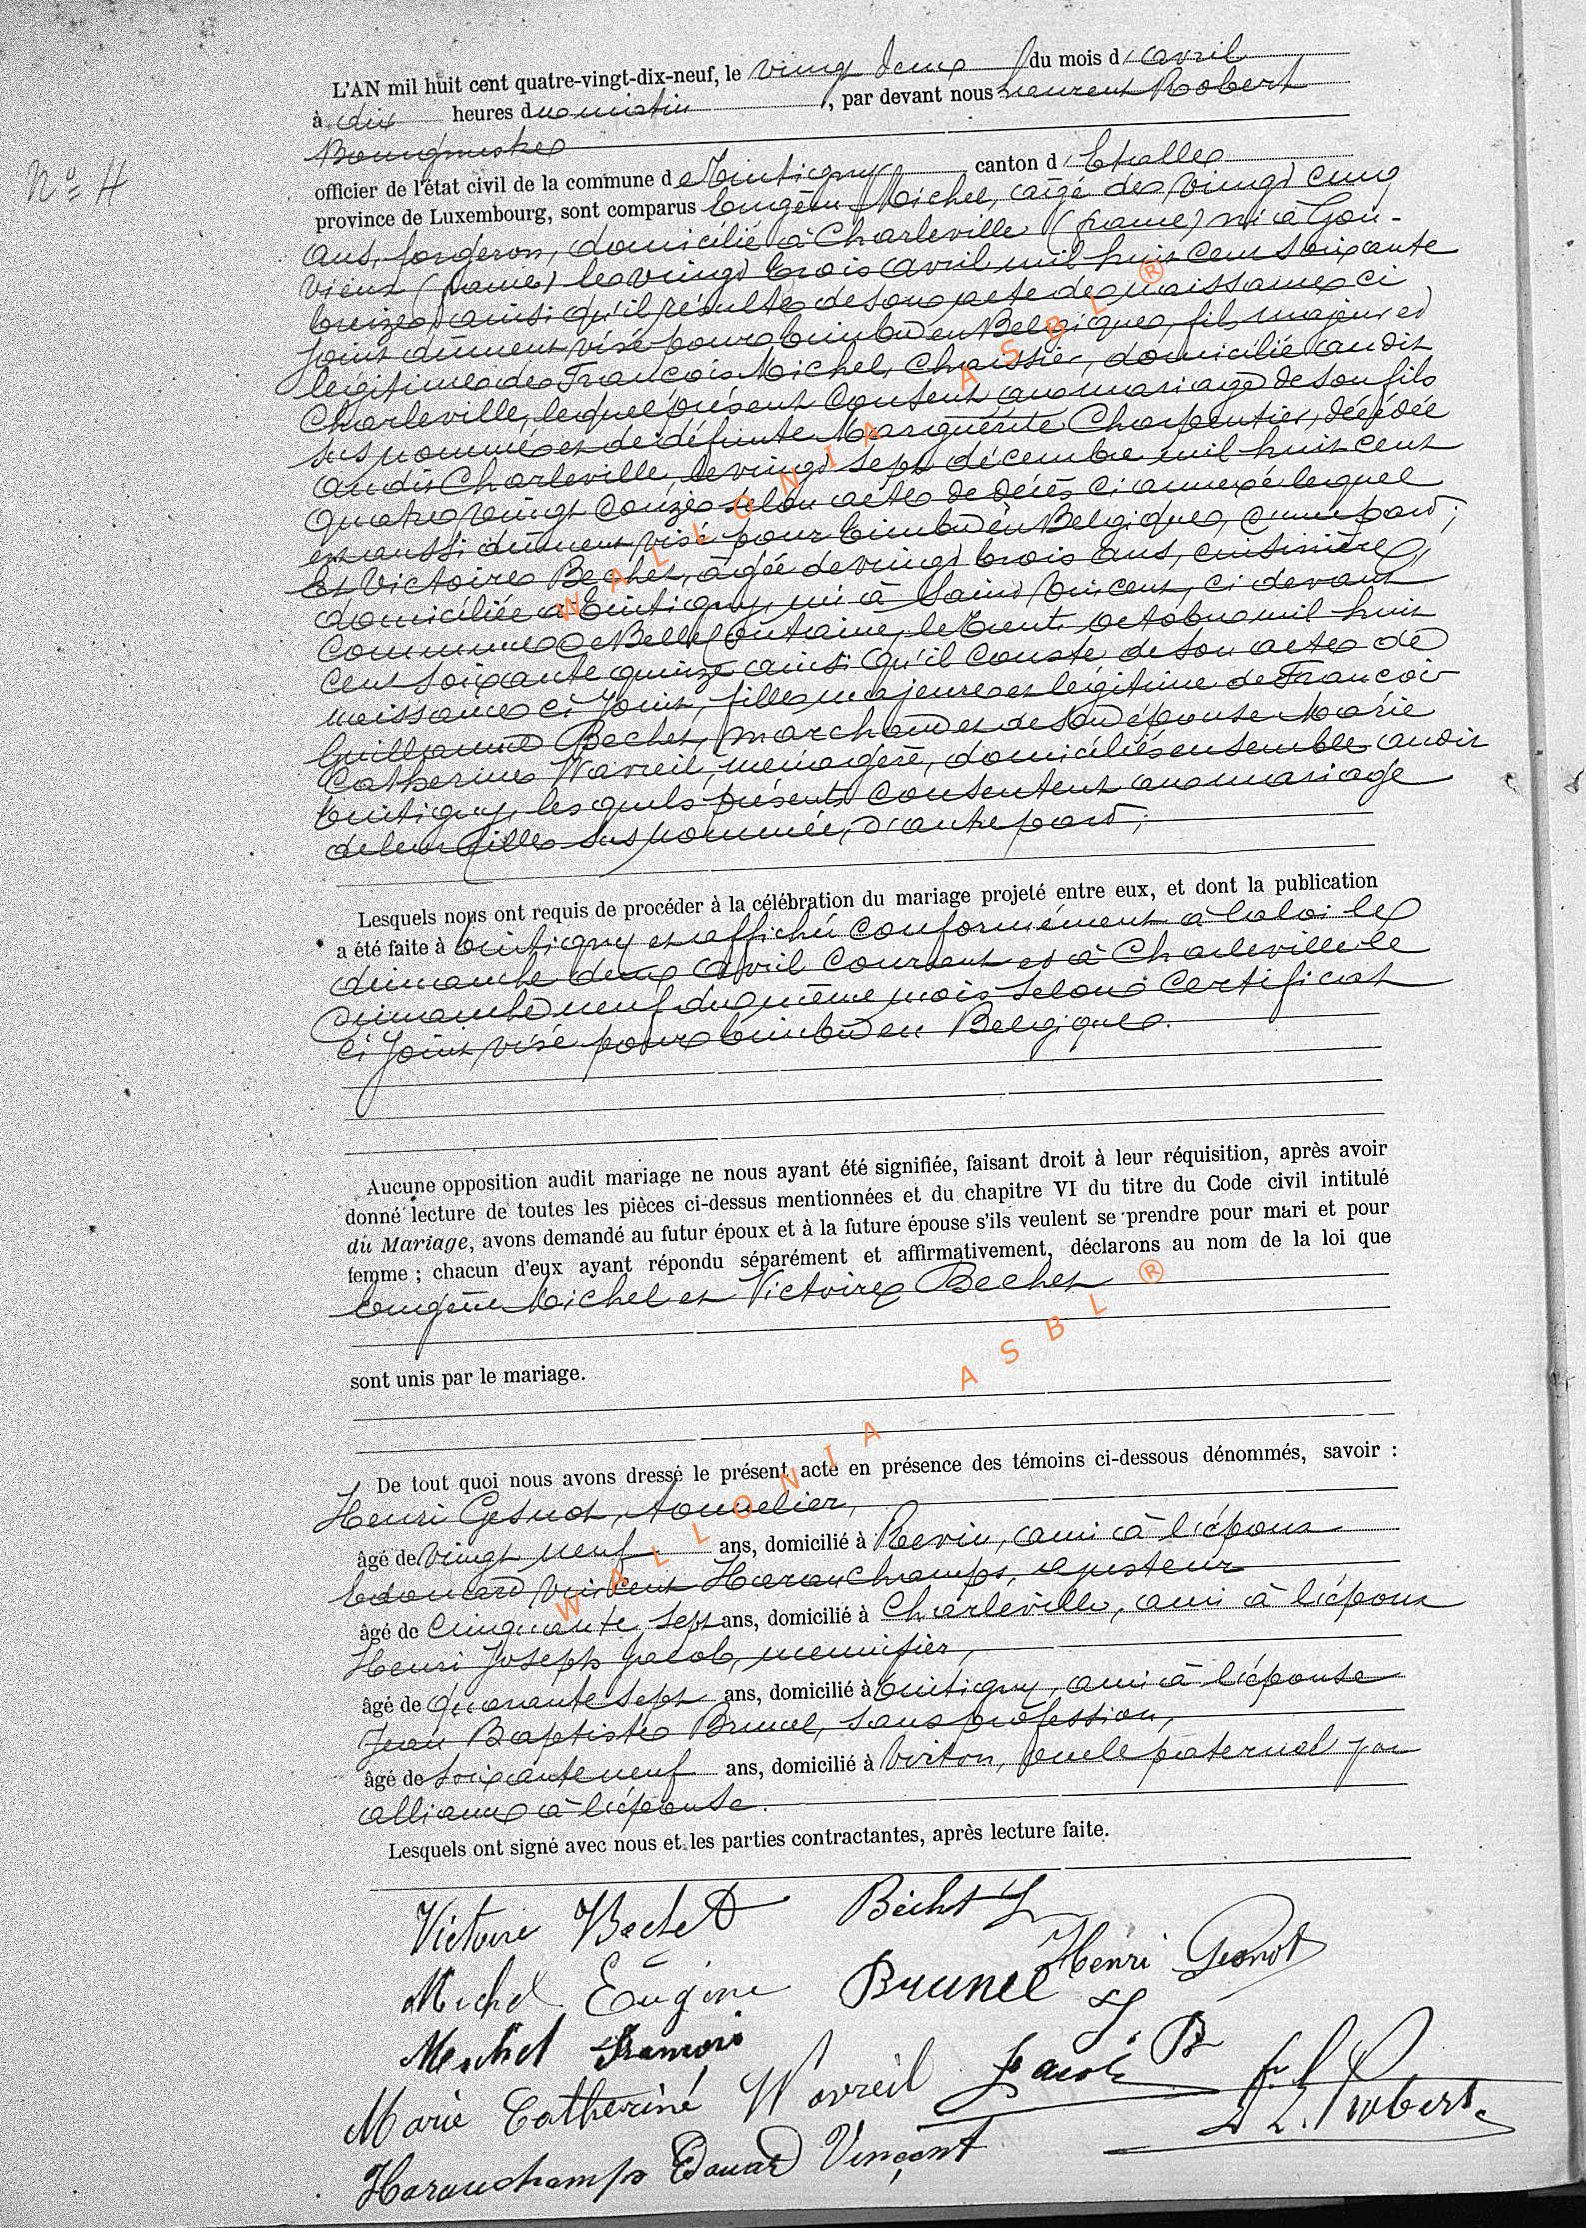 N° 4
L'AN mil huit cent quatre-vingt-dix-neuf, le vingt deux du mois d'avril
à dix heures du matin, par devant nous Laurent Robert
Bourgmestre
officier de l'état civil de la commune de Tintigny canton d'Etalle
province de Luxembourg, sont comparus Eugène Michel, âgé de vingt cinq
ans, forgeron, domicilié à Charleville (france) né à
vieux (france) le vingt trois avril mil huit cent soixante
treize ainsi qu'il résulte de son acte de naissance ci
joint dûment visé pour timbre en Belgique, fils majeur et
légitime de François Michel, domicilié audit
Charleville, lequel présent consent au mariage de son fils
susnommé et de défunte Marguerite Charpentier, décédée
audit Charleville, le vingt sept décembre mil huit cent
quatre vingt selon acte de décès ci annexé lequel
est aussi dûment visé pour timbre en Belgique, d'une part;
Et Victoire Bechet, âgée de vingt trois ans, cuisinière
domiciliée à Tintigny, née à Saint Vincent, ci devant
commune de Bellefontaine, le trente octobre mil huit
cent soixante quinze ainsi qu'il conste de son acte de
naissance ci joint, fille majeure et légitime de François
Guillaume Bechet, marchand et de son épouse Marie
Catherine Wavreil, ménagère, domiciliés ensemble audit
Tintigny, lesquels présents consentent au mariage
de leur fille susnommée, d'autre part;
Lesquels nous ont requis de procéder à la célébration du mariage projeté entre eux, et dont la publication
a été faite à Tintigny et affichée conformément à la loi le
dimanche deux avril courant et à Charleville le
dimanche neuf du même mois selon certificat
ci joint visé pour timbre en Belgique.
Aucune opposition audit mariage ne nous ayant été signifiée, faisant droit à leur réquisition, après avoir
donné lecture de toutes les pièces ci-dessus mentionnées et du chapitre VI du titre du Code civil intitulé
du Mariage, avons demandé au futur époux et à la future épouse s'ils veulent se prendre pour mari et pour
femme ; chacun d'eux ayant répondu séparément et affirmativement, déclarons au nom de la loi que
Eugène Michel et Victoire Bechet
sont unis par le mariage.
De tout quoi nous avons dressé le présent acte en présence des témoins ci-dessous dénommés, savoir :
Henri Gesnot, tonnelier,
âgé de vingt neuf ans, domicilié à Revin, ami à l'époux
Edouard Vincent Harauchamps, ajusteur
âgé de cinquante sept ans, domicilié à Charleville, ami à l'époux
Henri Joseph Jacob, menuisier,
âgé de quarante sept ans, domicilié à Tintigny, ami à l'épouse
Jean Baptiste Brunel, sans profession,
âgé de soixante neuf ans, domicilié à Virton, oncle paternel par
alliance à l'épouse.
Lesquels ont signé avec nous et les parties contractantes, après lecture faite.
Victoire Bechet
Michel Eugène Brunel Henri Gesnot
Michel François
Marie Catherine Wavreil Jacob
L. Robert
Harauchamps Edouard Vincent
WALLONIA ASBL ®
WALLONIA ASBL ®